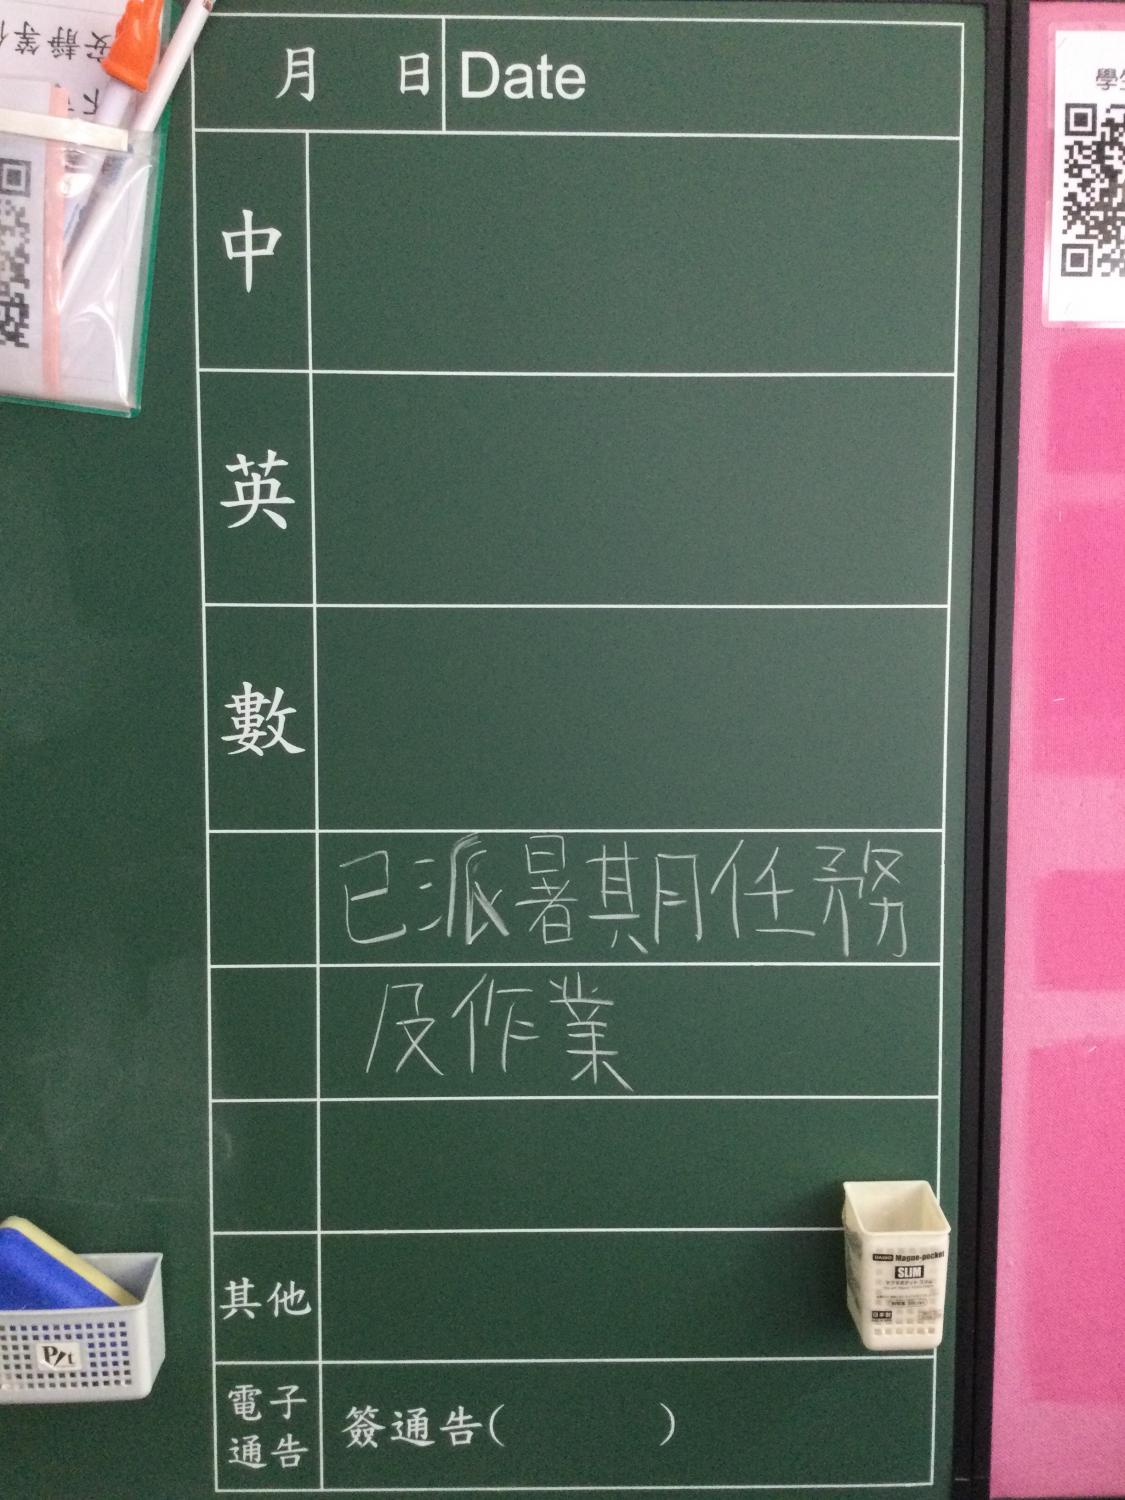 月 日 Date
中
英
數
已派暑期任務
及作業
其他
電子
通告
簽通告( )
安靜等
學生
Magne-pocket
SLIM
P/t